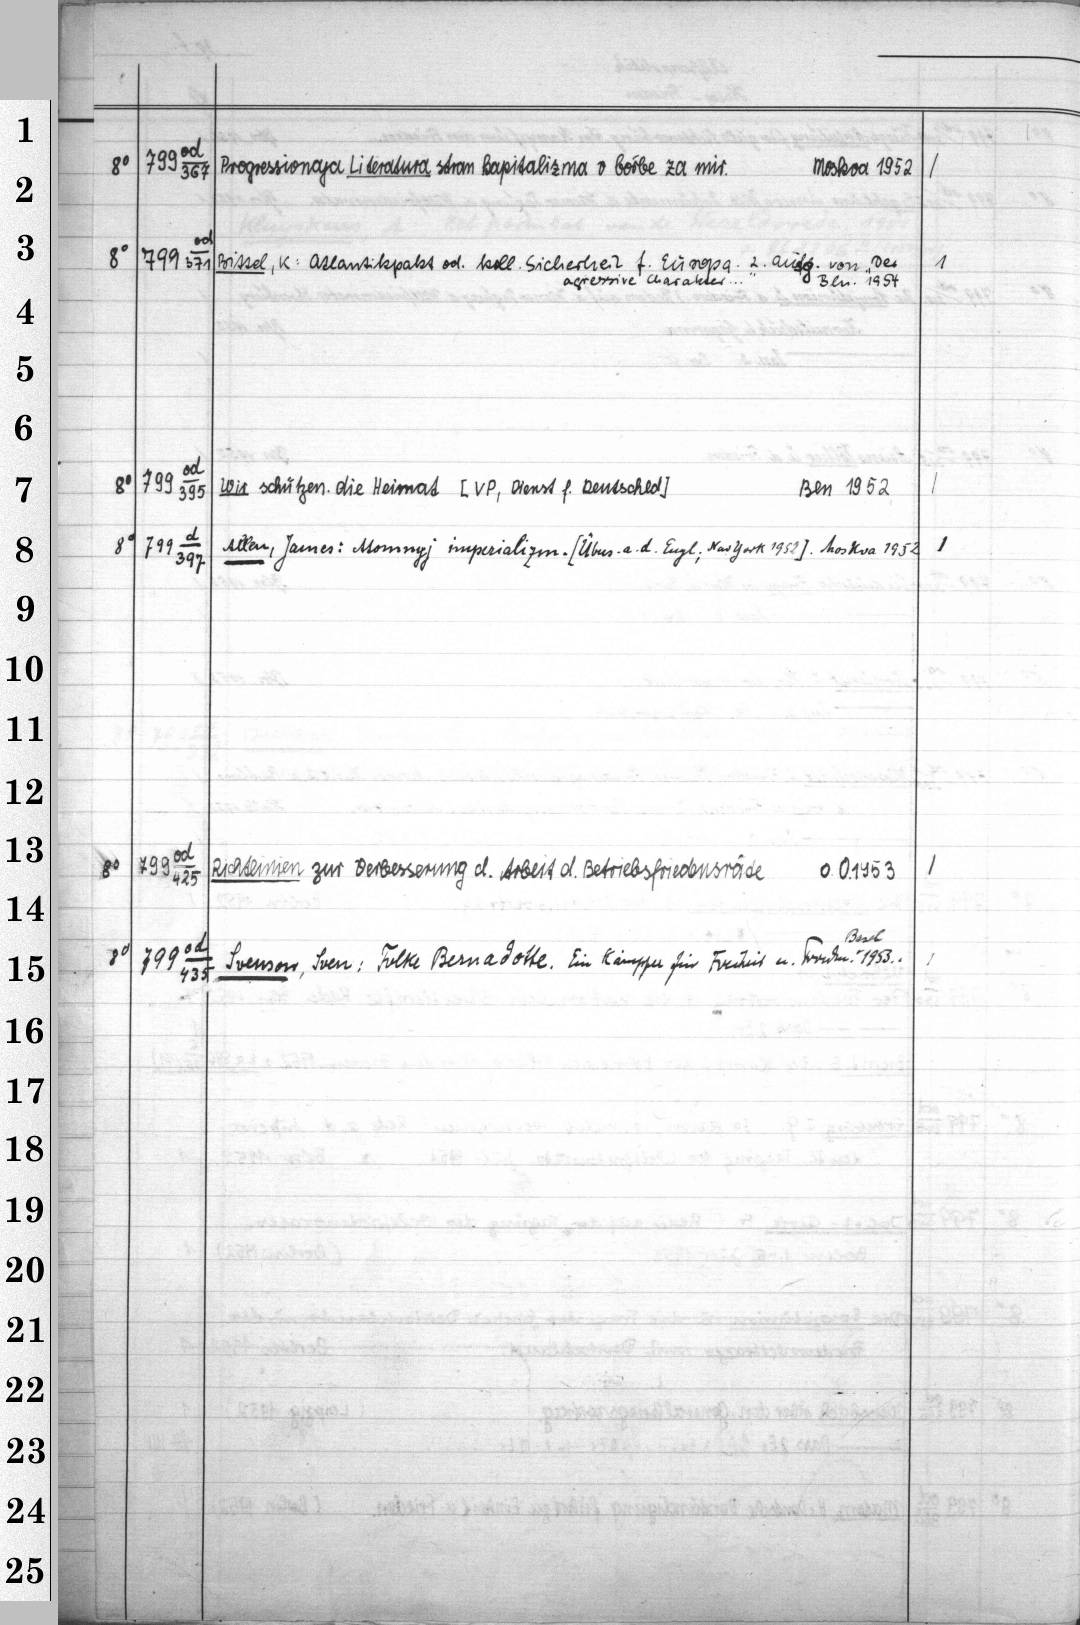 1
8° 799 od/367 Progressionaja Literatura stran kapitalizma v bořbe za mir. Moskva 1952 /
2
3
8° 799 od/371 Bittel, K: Atlantikpakt od. koll. Sicherheit f. Europa. 2. Aufg. von „Der 1
agressive Charakter..." Bln. 1954
4
5
6
7
8° 799 od/395 Wir schützen die Heimat [VP, Dienst f. Deutschld] Bln 1952 /
8
8° 799 d/397 Allen, James: Atomnyj imperializm. [Übers. a. d. Engl; New York 1952]. Moskva 1952 1
9
10
11
12
13
8° 799 od/425 Richtlinien zur Verbesserung d. Arbeit d. Betriebsfriedensräte o. O. 1953 /
14
Basel
15
8° 799 od/435 Svenson, Sven: Folke Bernadotte. Ein Kämpfer für Freiheit u. 1953. /
16
17
18
19
20
21
22
23
24
25